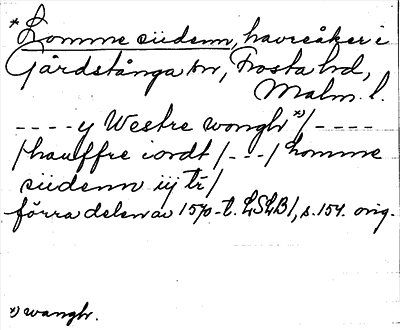 *Komme südenn, havreåker i
Gårdstånga sn, Frosta hd,
Malm. l.
---- y Westre wongh *)/ ----
/hauffre iordt /---/ komme
südenn iij tr/
förra delen av 1570-t. LSLB/, s. 154. orig.
*) wangh.